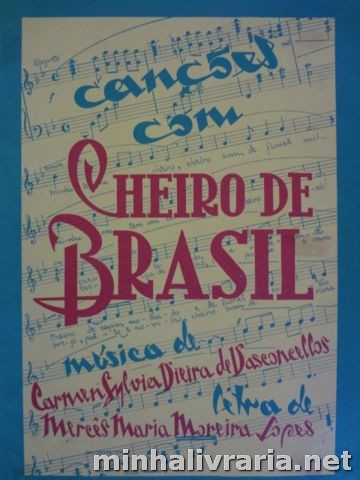 canções
com
CHEIRO DE
BRASIL
música de
Carmen Sylvia Vieira de Vasconcellos
letra de
Mercês Maria Moreira Lopes
minhalivraria.net